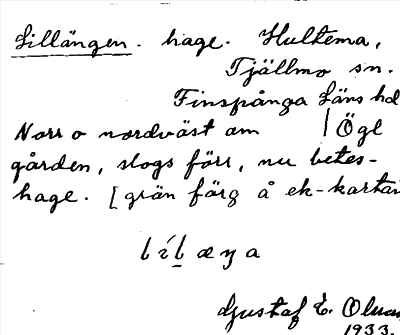 Lillängen. hage. Hultema,
Tjällmo sn.
Finspånga Läns hd
Norr o nordväst om | Ögl
gården, slogs förr, nu betes-
hage. [grän färg å ek-kartan
Gustaf E.
1933.